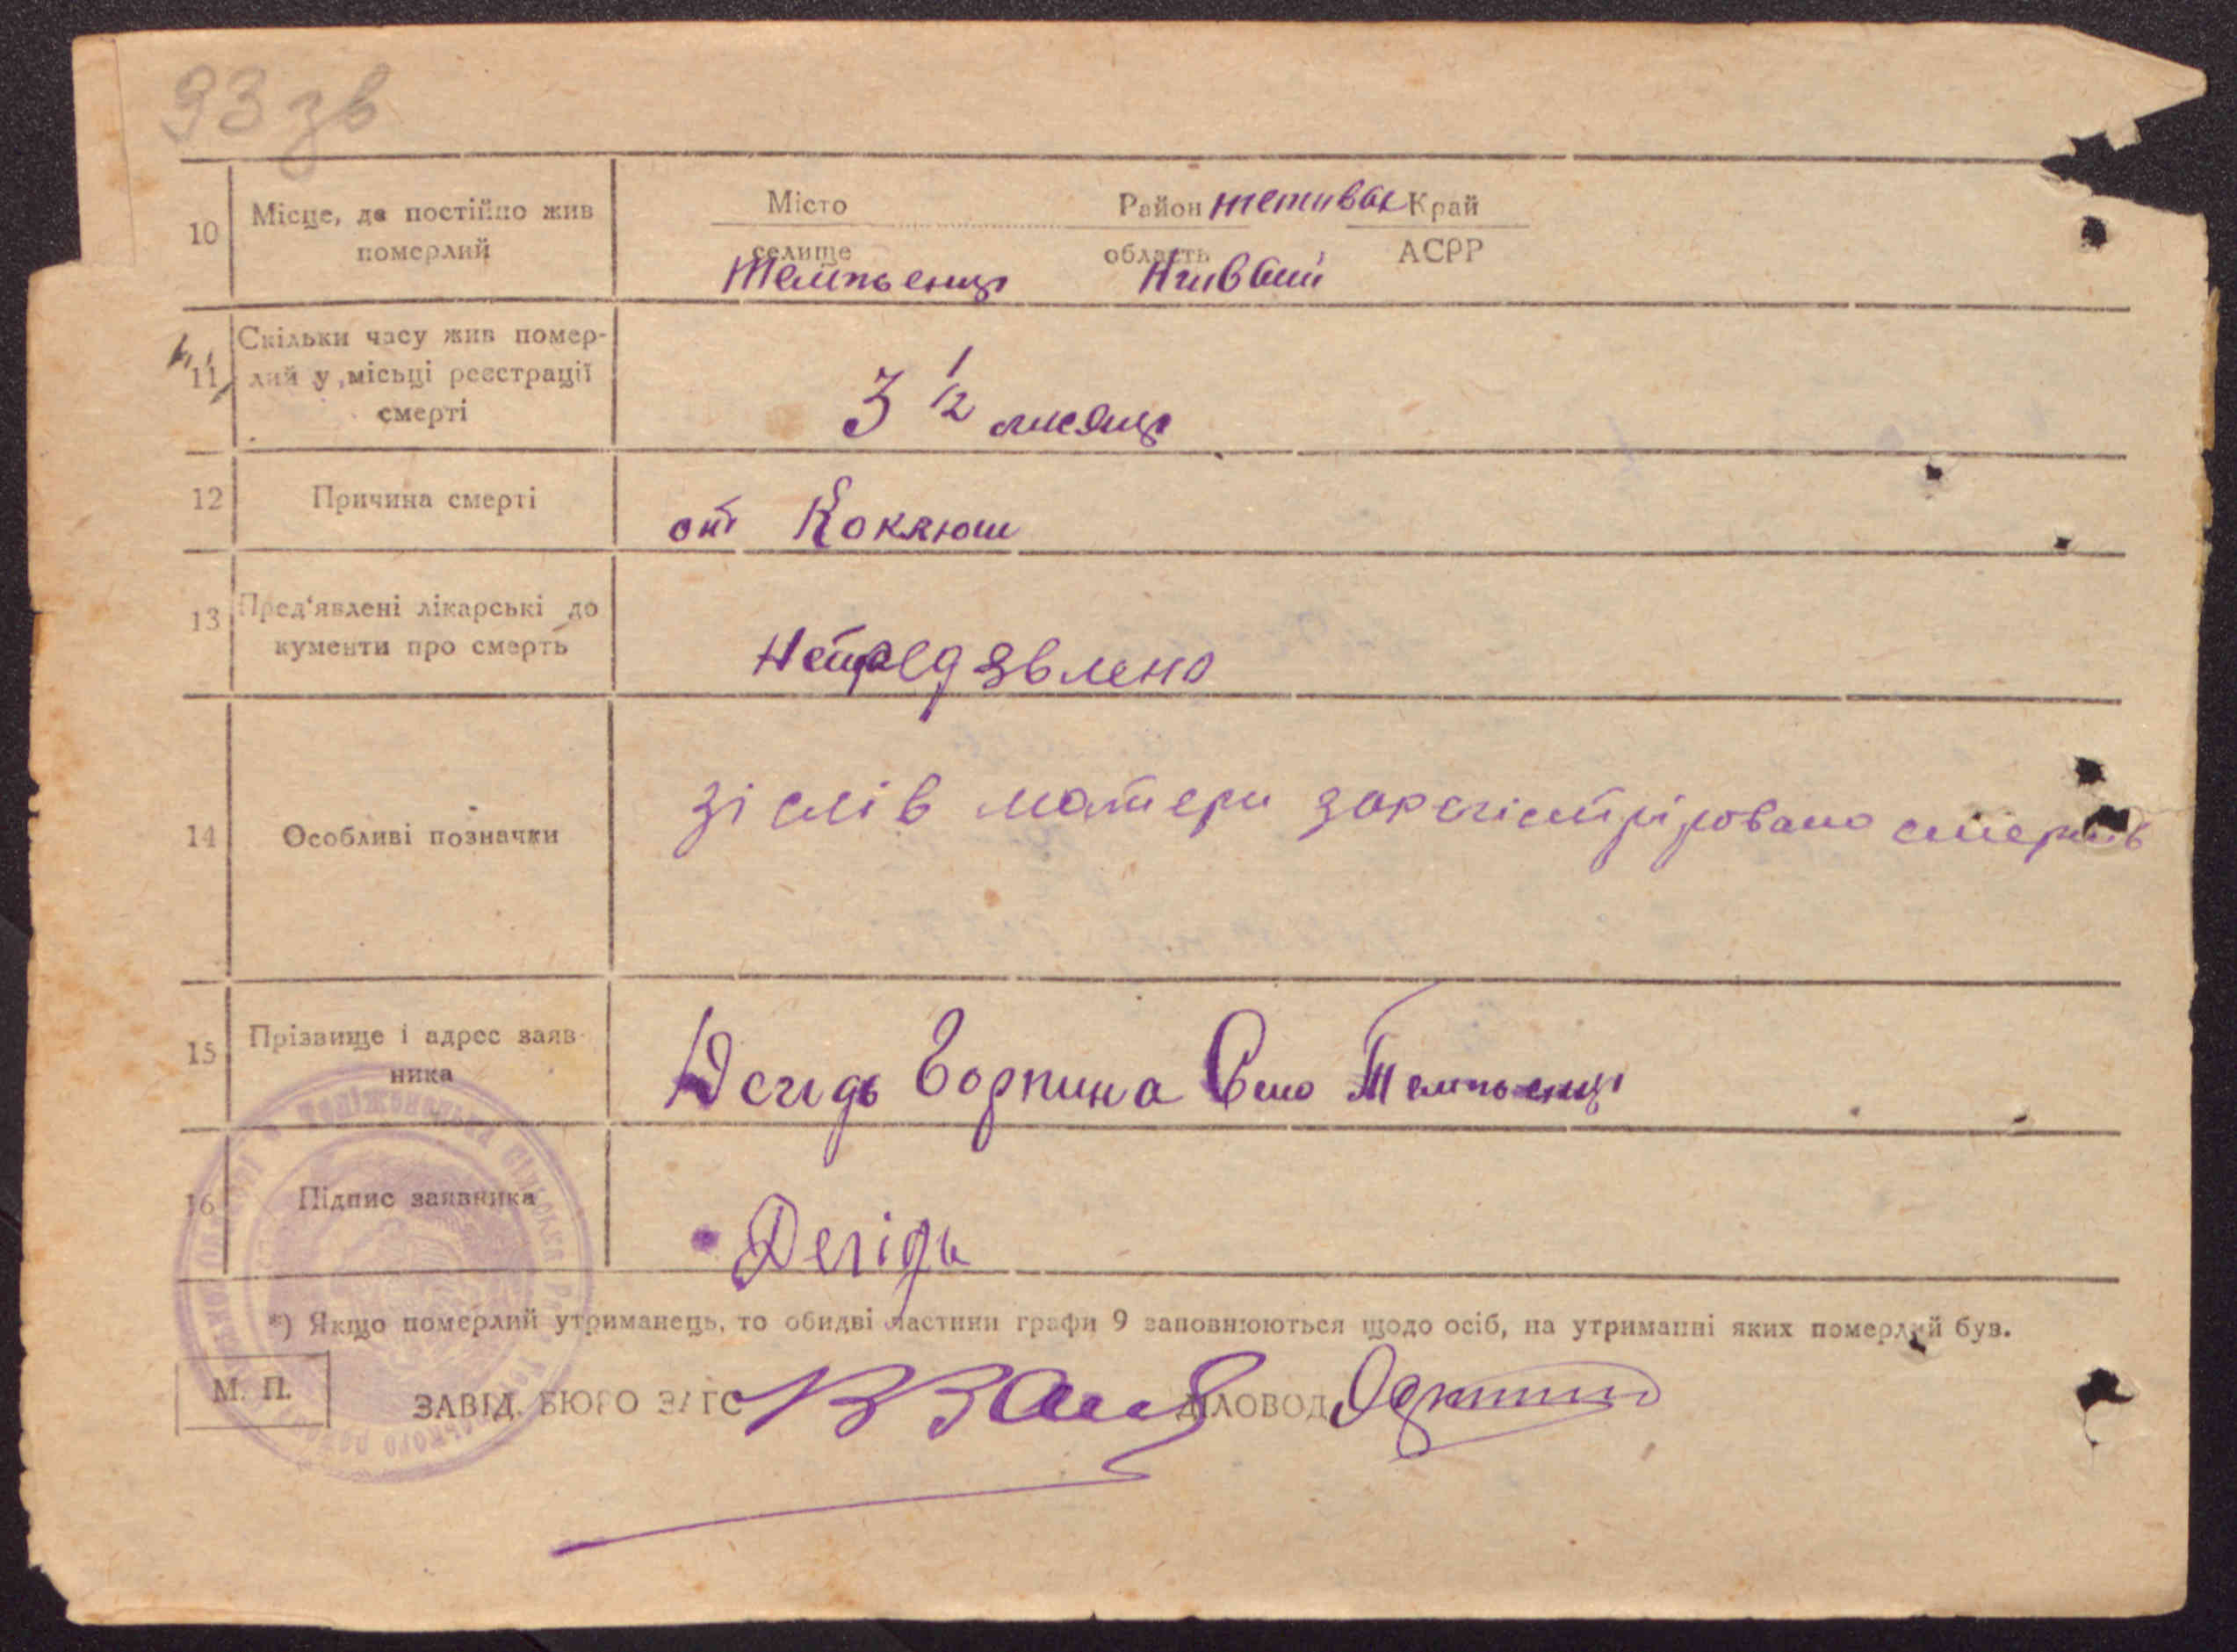 93 зв
10 Місце, де постійно жив померлий
Місто Район тетивск Край
селище область АСРР
Київський
11 Скільки часу жив померлий у місьці реєстрації смерті
3 1/2 місяці
12 Причина смерті
от Коклюш
13 Пред'явлені лікарські документи про смерть
непредявлено
14 Особливі позначки
зі слів матери зарегістріровано смерть
15 Прізвище і адрес заявника
Дегидь Горпина Село
16 Підпис заявника
Дегідь
*) Якщо померлий утриманець, то обидві частини графи 9 заповнюються щодо осіб, на утриманні яких померлий був.
М. П.
ЗАВІД. БЮРО ЗАГС ДІЛОВОД